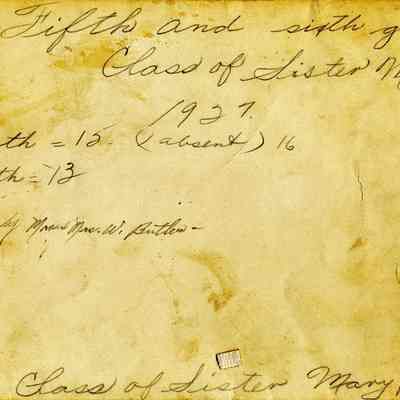 Fifth and sixth g
Class of Sister M
1927.
th = 15. (absent) 16
th = 13
by Mrs. W. Butler -
Class of Sister Mary